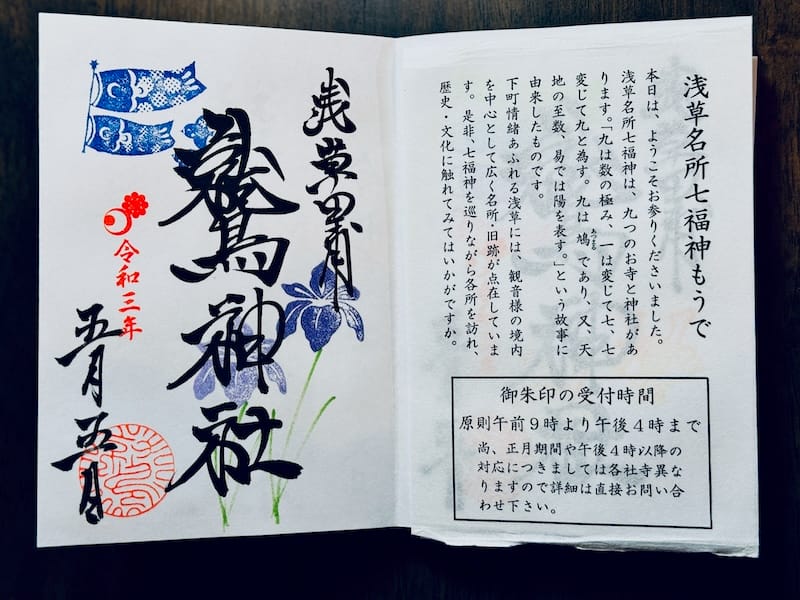 浅草名所七福神もうで
本日は、ようこそお参りくださいました。
浅草名所七福神は、九つのお寺と神社があ
ります。「九は数の極み、一は変じて七、七
変じて九と為す。九は鳩であり、又、天
あつまる
地の至数、易では陽を表す。」という故事に
由来したものです。
下町情緒あふれる浅草には、観音様の境内
を中心として広く名所・旧跡が点在していま
す。是非、七福神を巡りながら各所を訪れ、
歴史・文化に触れてみてはいかがですか。
御朱印の受付時間
原則午前9時より午後4時まで
尚、正月期間や午後4時以降の
対応につきましては各社寺異な
りますので詳細は直接お問い合
わせ下さい。
浅草田甫
鷲神社
令和三年
五月五日